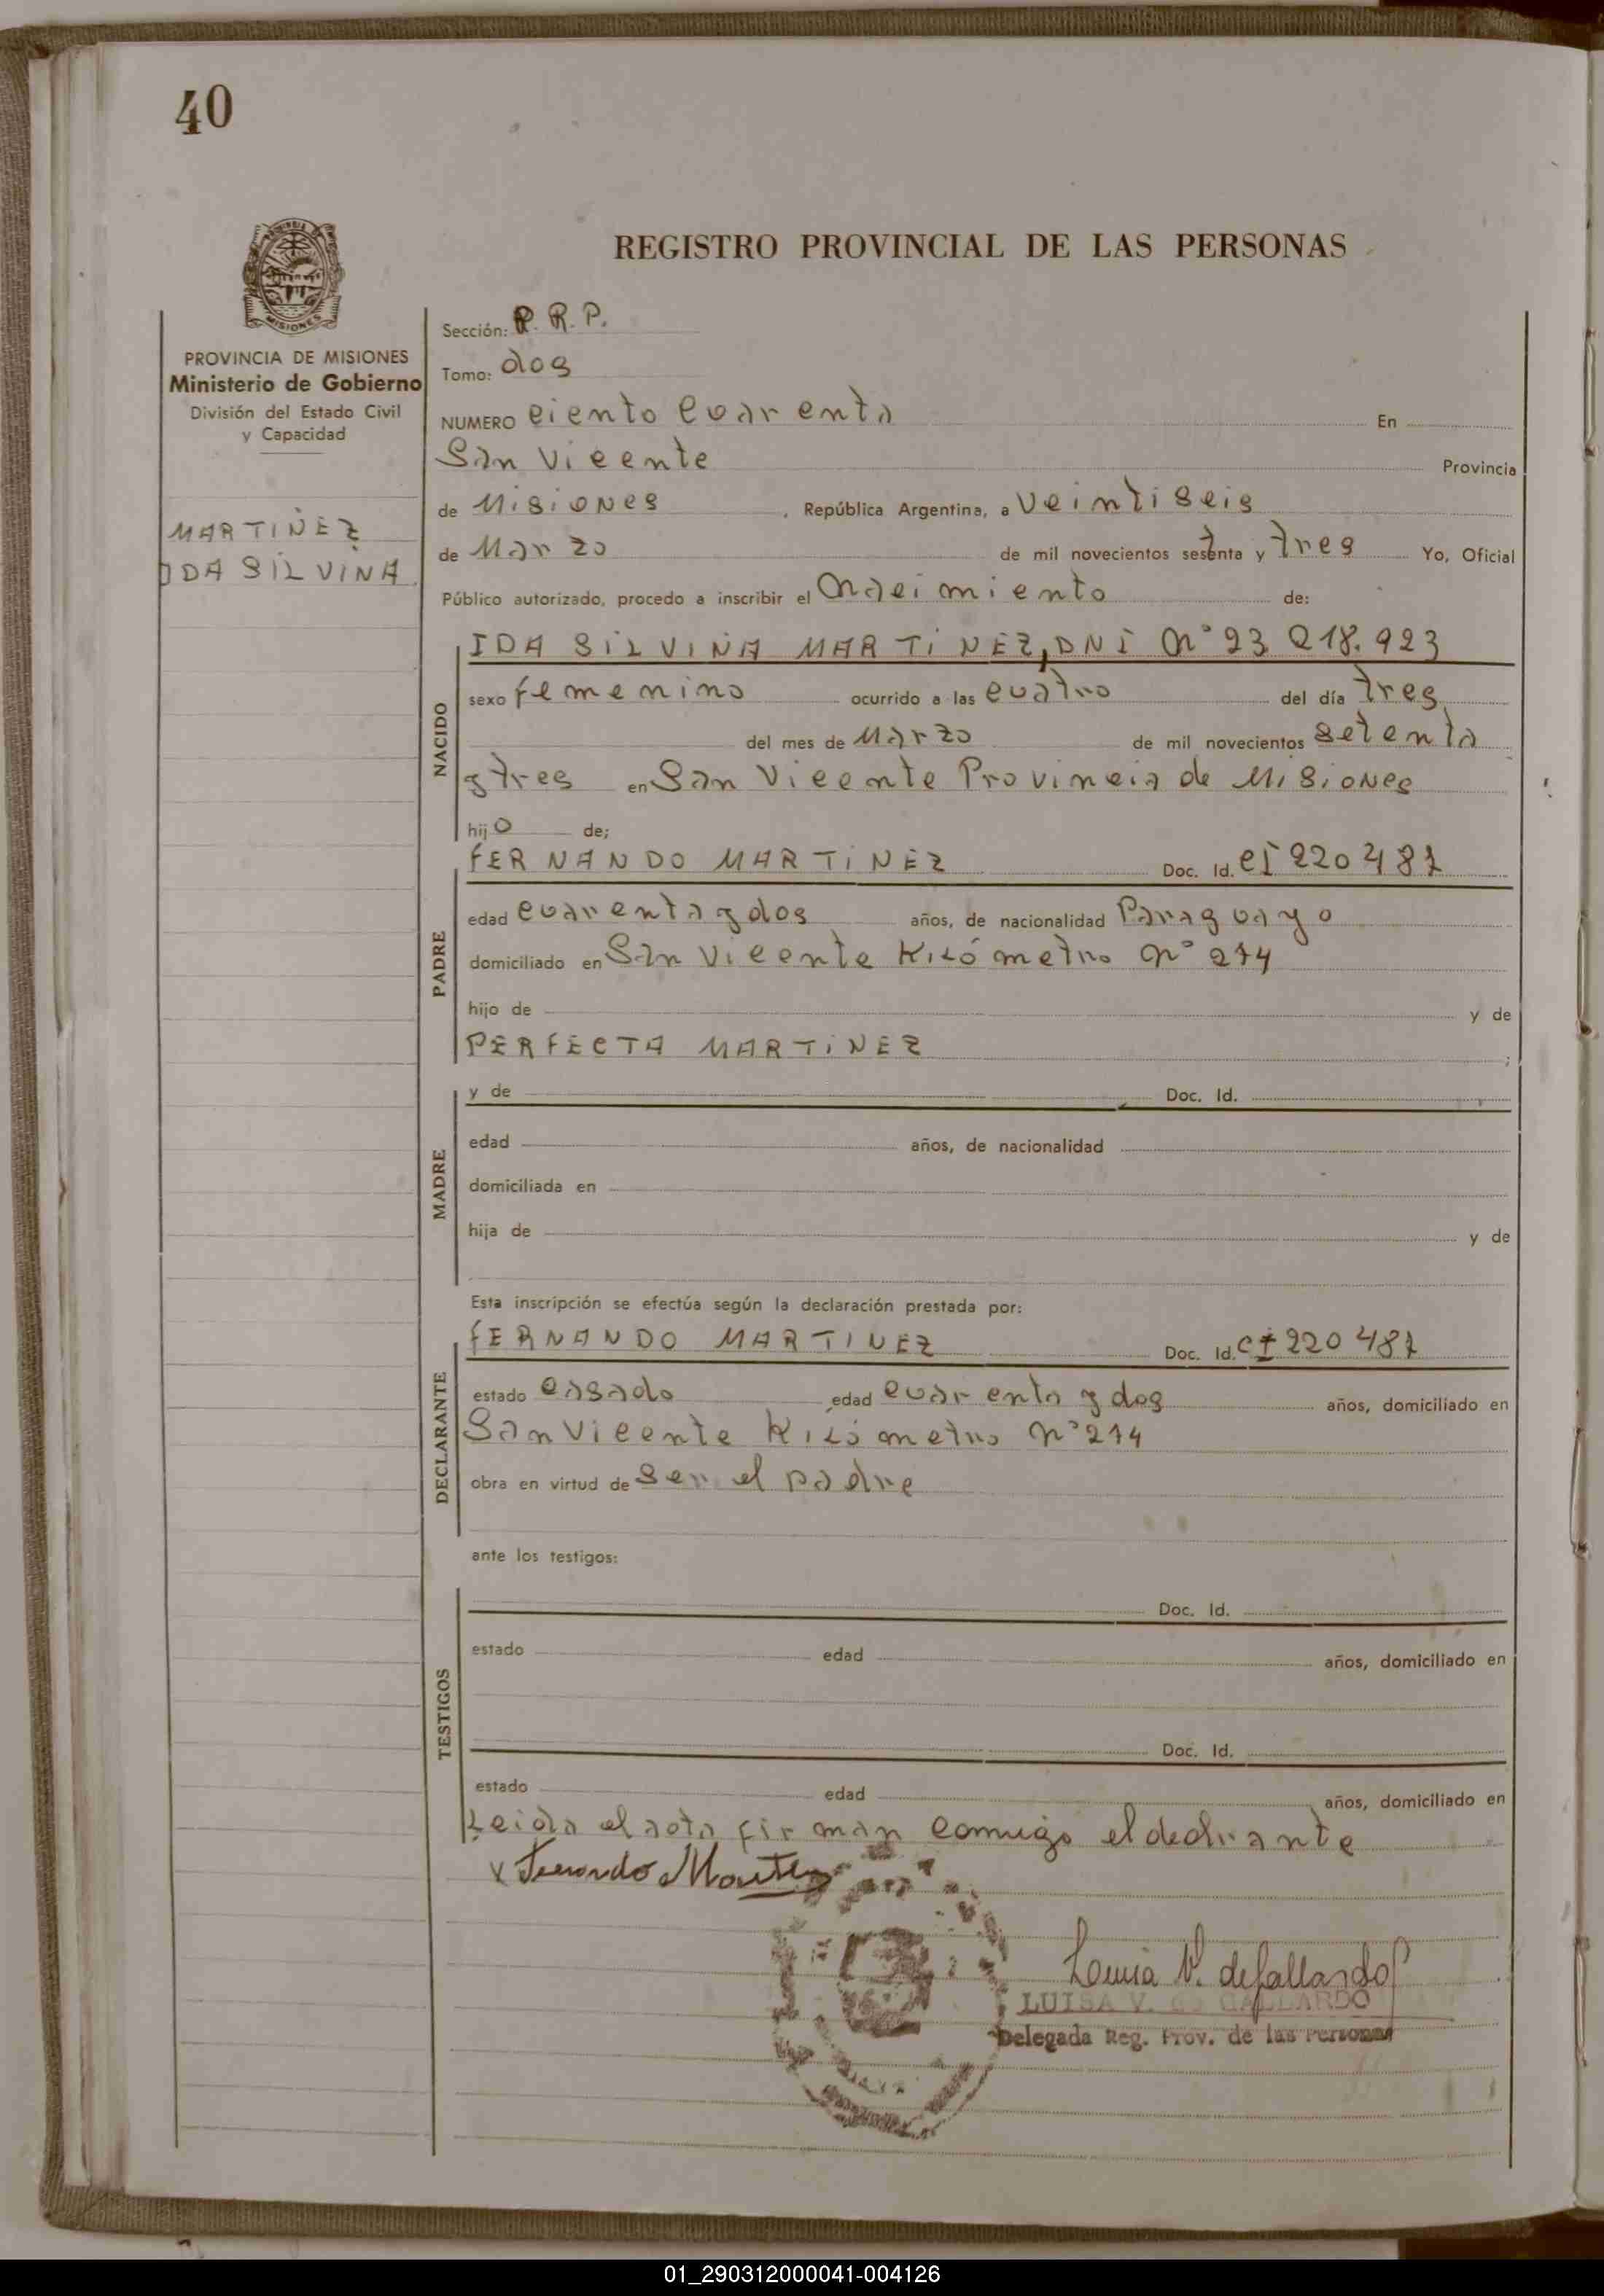 40
REGISTRO PROVINCIAL DE LAS PERSONAS
MISIONES
PROVINCIA DE MISIONES
Ministerio de Gobierno
División del Estado Civil
y Capacidad
MARTINEZ
IDA SILVINA
Sección: R. R. P.
Tomo: dos
NUMERO ciento cuarenta En
San Vicente Provincia
de Misiones , República Argentina, a Veintiseis
de Marzo de mil novecientos setenta y tres Yo, Oficial
Público autorizado, procedo a inscribir el Nacimiento de:
NACIDO
IDA SILVINA MARTINEZ, DNI Nº 23.218.923
sexo femenino ocurrido a las cuatro del día tres
del mes de Marzo de mil novecientos setenta
y tres en San Vicente Provincia de Misiones
hijo de;
PADRE
FERNANDO MARTINEZ Doc. Id. CI 220487
edad cuarenta y dos años, de nacionalidad Paraguayo
domiciliado en San Vicente Kilómetro Nº 274
hijo de y de
PERFECTA MARTINEZ ;
MADRE
y de Doc. Id.
edad años, de nacionalidad
domiciliada en
hija de y de
Esta inscripción se efectúa según la declaración prestada por:
DECLARANTE
FERNANDO MARTINEZ Doc. Id. CI 220487
estado casado edad cuarenta y dos años, domiciliado en
San Vicente Kilómetro Nº 274
obra en virtud de ser el padre
ante los testigos:
TESTIGOS
Doc. Id.
estado edad años, domiciliado en
Doc. Id.
estado edad años, domiciliado en
Leida el acta firman comigo el declrante
x Fernando Martinez
Luisa V. de Gallardo
LUISA V. de GALLARDO
Delegada Reg. Prov. de las Personas
01_290312000041-004126